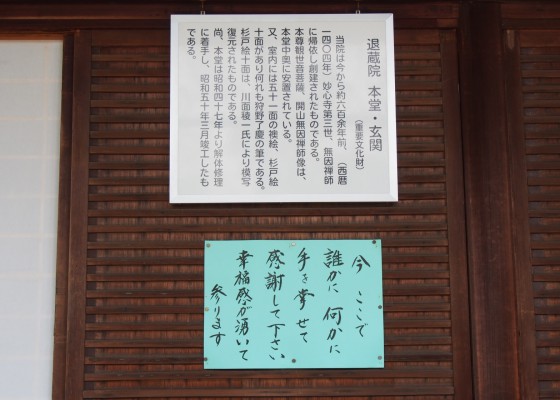 退蔵院 本堂・玄関
(重要文化財)
当院は今から約六百余年前、(西暦
一四〇四年)妙心寺第三世、無因禅師
に帰依し創建されたものである。
本尊観世音菩薩、開山無因禅師像は、
本堂中奥に安置されている。
又、室内には五十一面の襖絵、杉戸絵
十面があり何れも狩野了慶の筆である。
杉戸絵十面は、川面稜一氏により模写
復元されたものである。
尚、本堂は昭和四十七年より解体修理
に着手し、昭和五十年三月竣工したも
のである。
今 ここで
誰かに 何かに
手を合せて
感謝して下さい
幸福感が湧いて
参ります